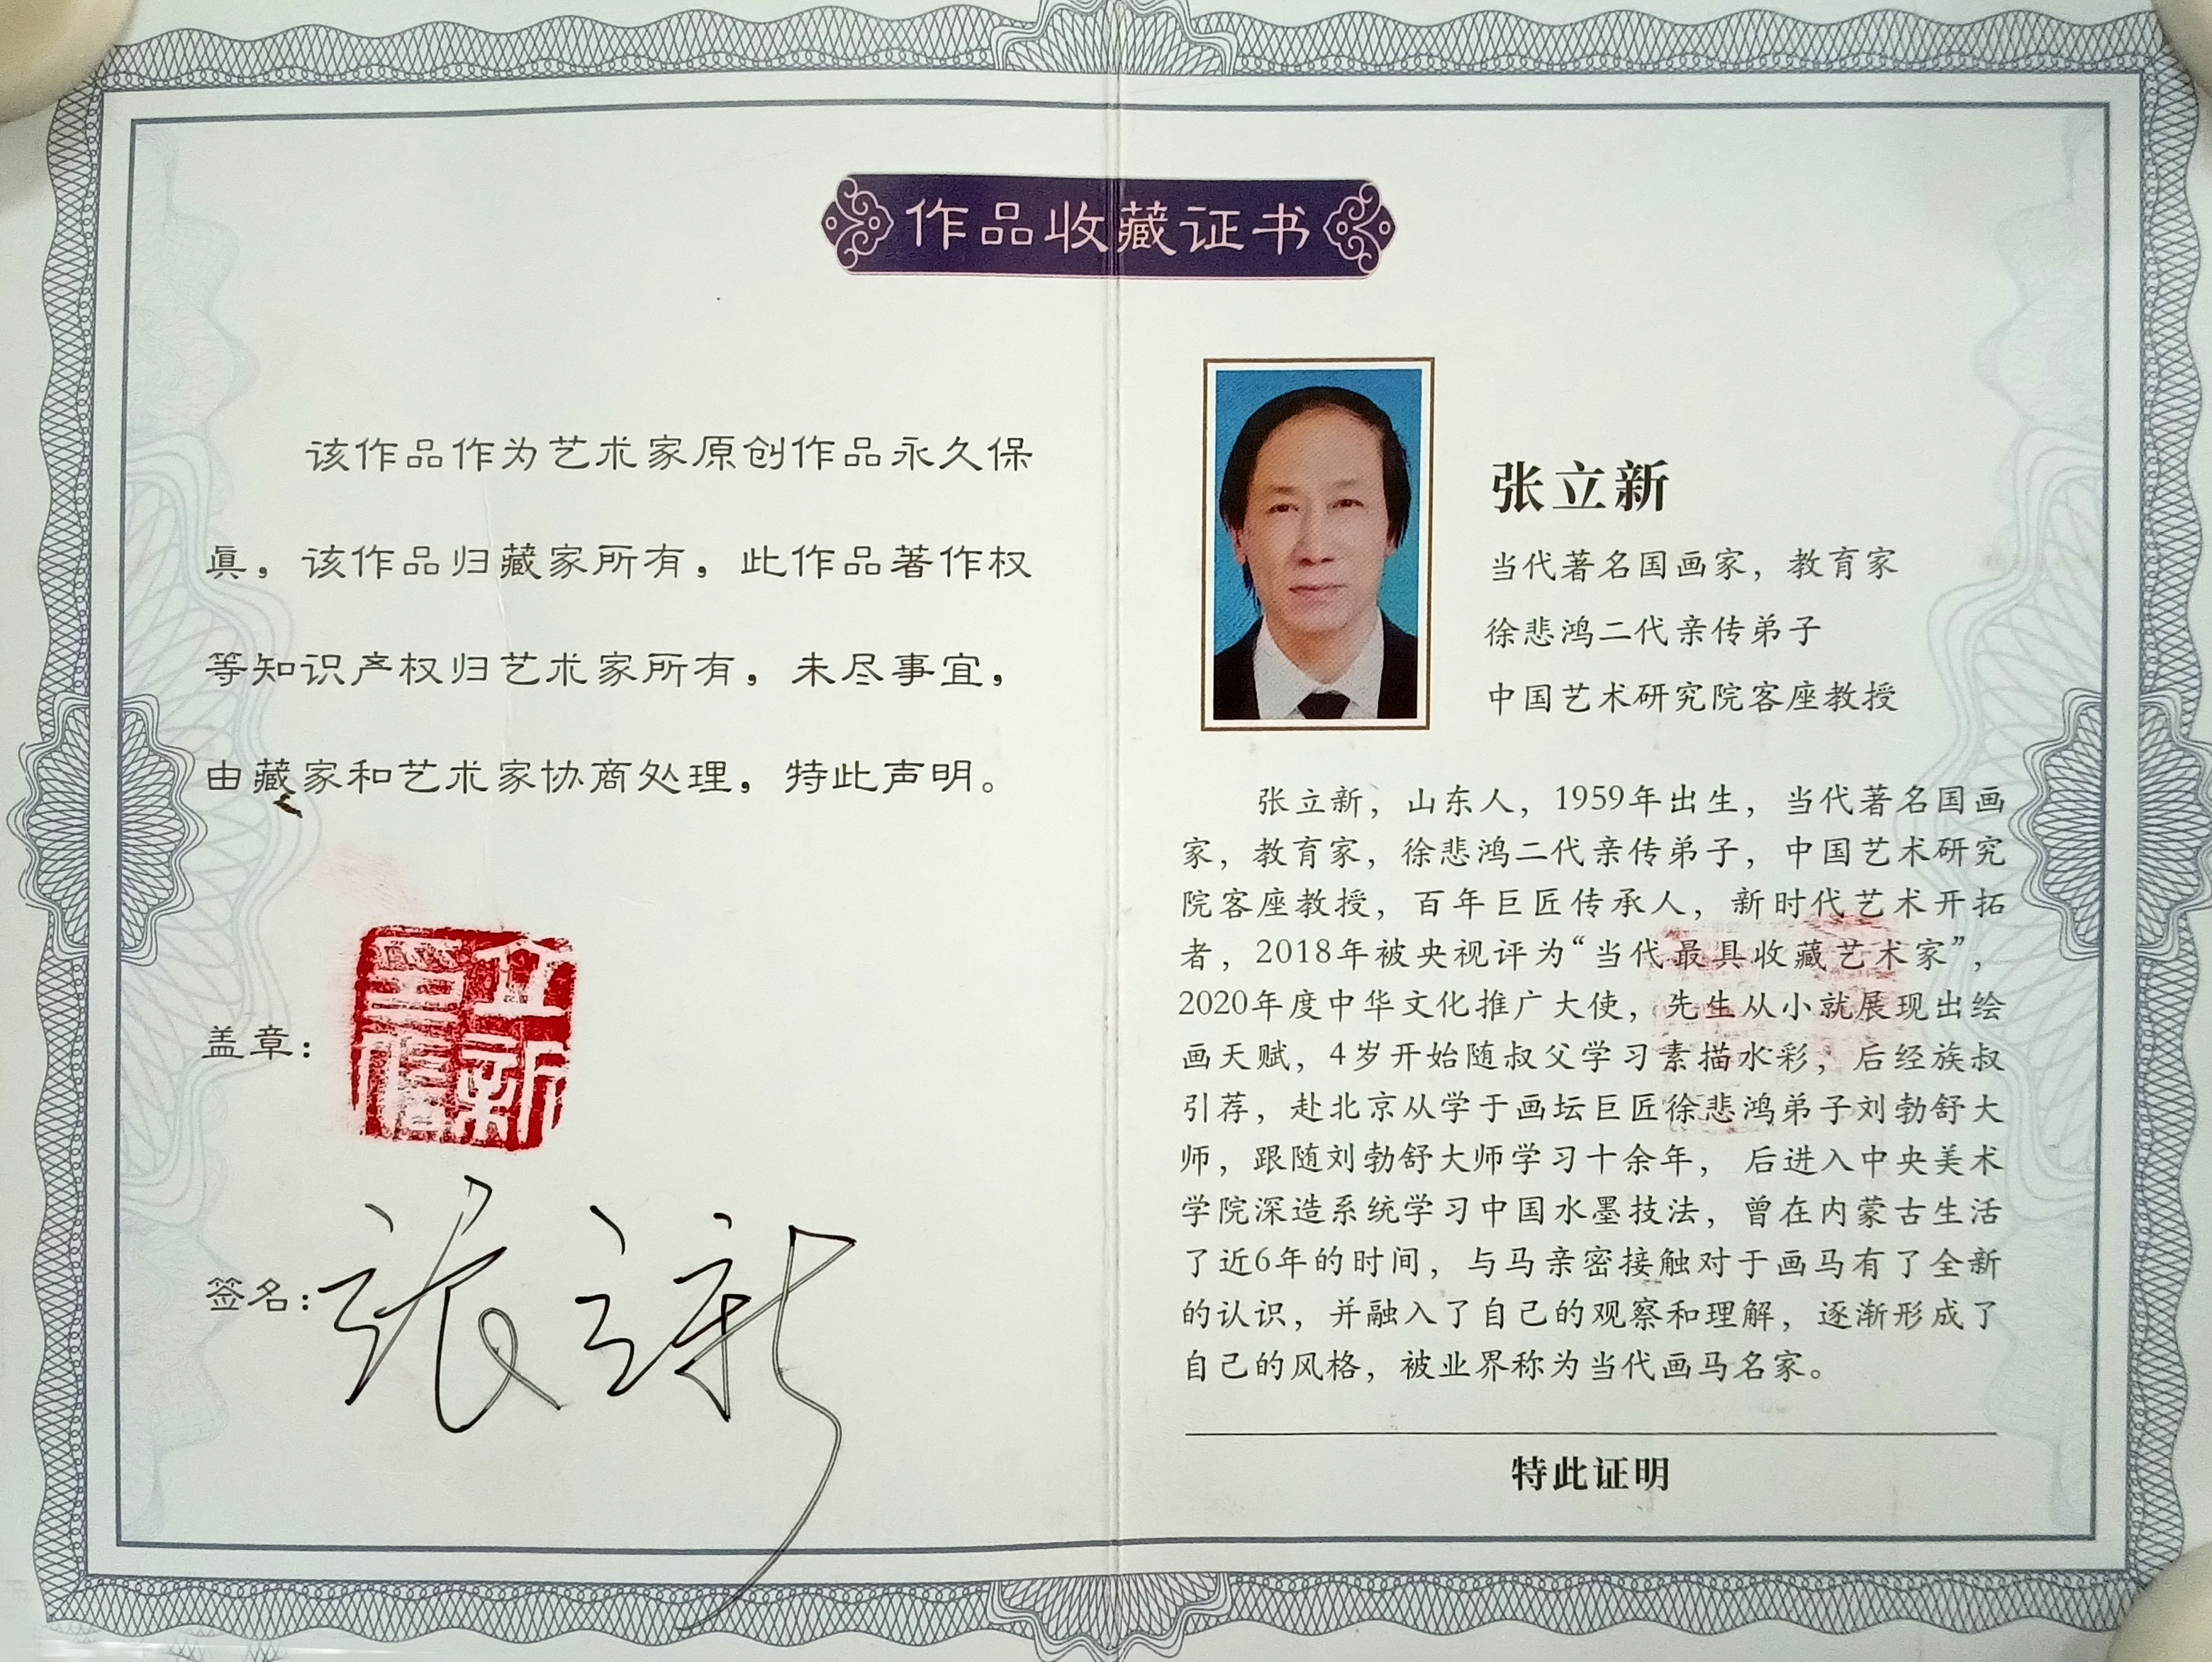 作品收藏证书
该作品作为艺术家原创作品永久保
真，该作品归藏家所有，此作品著作权
等知识产权归艺术家所有，未尽事宜，
由藏家和艺术家协商处理，特此声明。
盖章：
立新
签名：
张立新
张立新
当代著名国画家，教育家
徐悲鸿二代亲传弟子
中国艺术研究院客座教授
张立新，山东人，1959年出生，当代著名国画
家，教育家，徐悲鸿二代亲传弟子，中国艺术研究
院客座教授，百年巨匠传承人，新时代艺术开拓
者，2018年被央视评为“当代最具收藏艺术家”，
2020年度中华文化推广大使，先生从小就展现出绘
画天赋，4岁开始随叔父学习素描水彩，后经族叔
引荐，赴北京从学于画坛巨匠徐悲鸿弟子刘勃舒大
师，跟随刘勃舒大师学习十余年，后进入中央美术
学院深造系统学习中国水墨技法，曾在内蒙古生活
了近6年的时间，与马亲密接触对于画马有了全新
的认识，并融入了自己的观察和理解，逐渐形成了
自己的风格，被业界称为当代画马名家。
特此证明